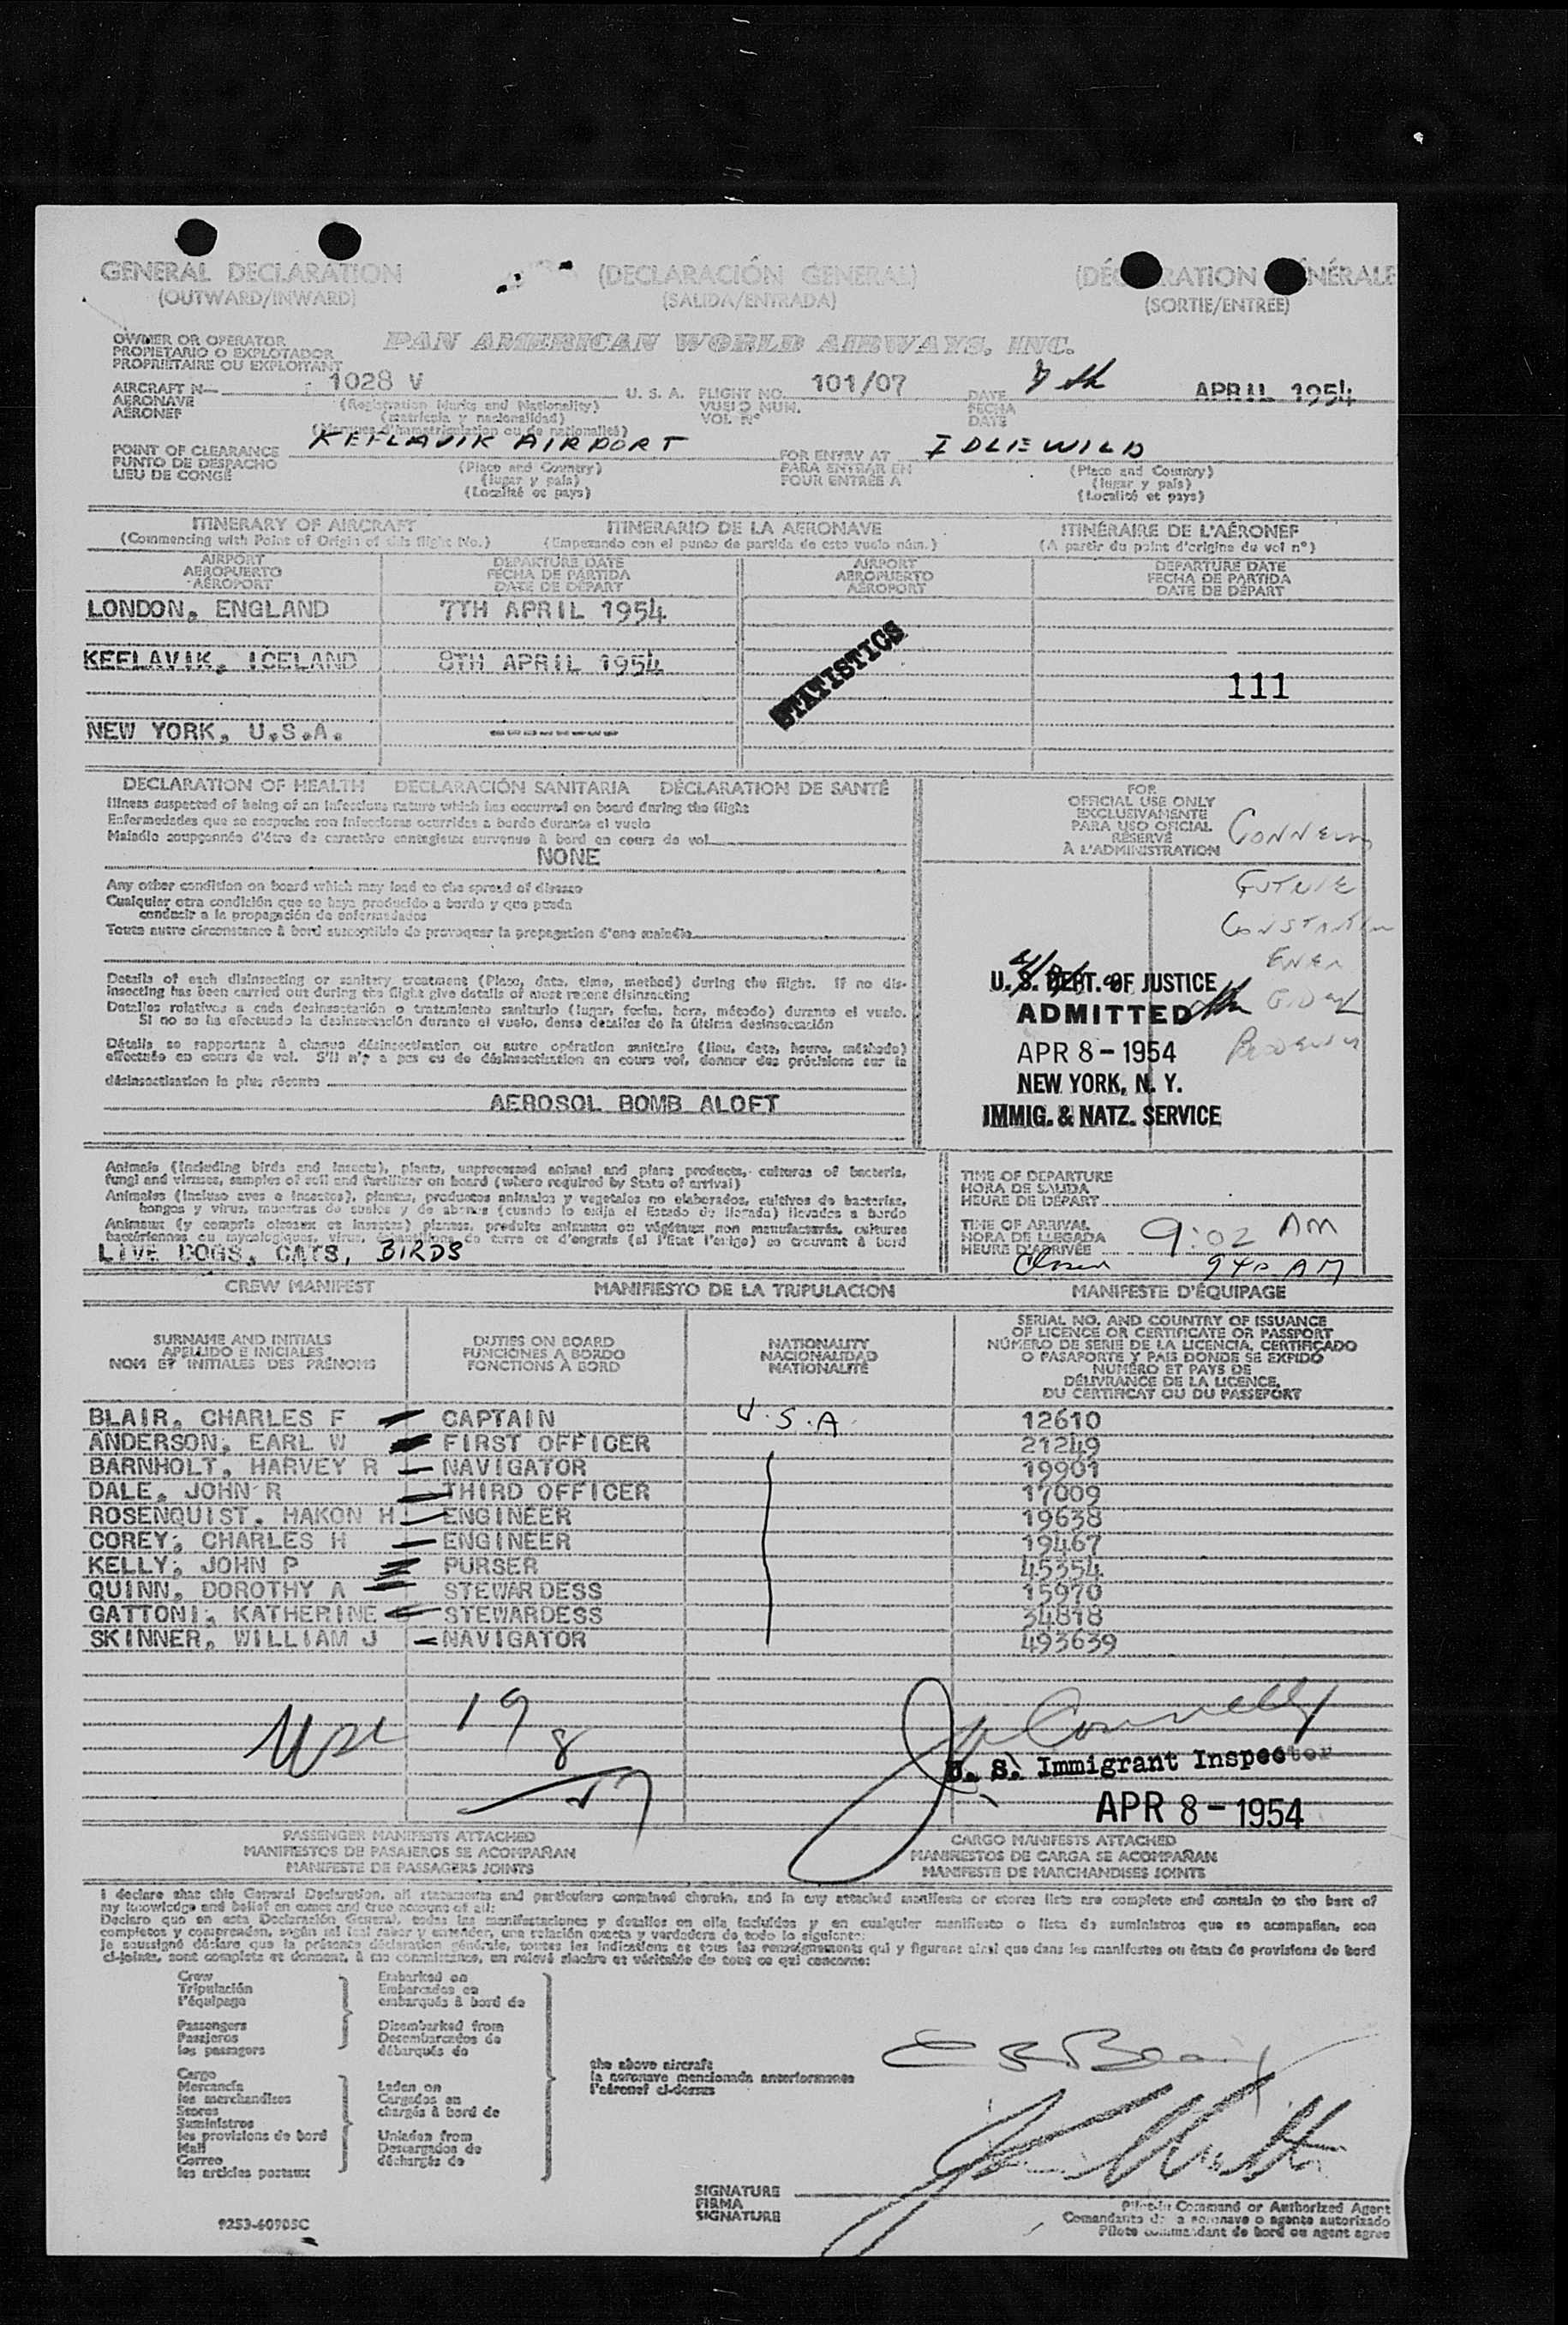 GENERAL DECLARATION (DECLARACIÓN GENERAL) (DÉC RATION NÉRALE
(OUTWARD/INWARD) (SALIDA/ENTRADA) (SORTIE/ENTRÉE)
OWNER OR OPERATOR
PROPIETARIO O EXPLOTADOR
PROPRIÉTAIRE OU EXPLOITANT
PAN AMERICAN WORLD AIRWAYS, INC.
AIRCRAFT N 1028 V U. S. A. FLIGHT NO. 101/07 DATE 7th APRIL 1954
AERONAVE (Registration Marks and Nationality) VUELO NUM. FECHA
AÉRONEF (matrícula y nacionalidad) VOL Nº DATE
(Marques d'immatriculation ou de nationalité)
POINT OF CLEARANCE KEFLAVIK AIRPORT FOR ENTRY AT IDLEWILD
PUNTO DE DESPACHO (Place and Country) PARA ENTRAR EN (Place and Country)
LIEU DE CONGÉ (lugar y país) POUR ENTRÉE A (lugar y país)
(Localité et pays) (Localité et pays)
ITINERARY OF AIRCRAFT ITINERARIO DE LA AERONAVE ITINÉRAIRE DE L'AÉRONEF
(Commencing with Point of Origin of this flight No.) (Empezando con el punto de partida de este vuelo núm.) (A partir du point d'origine du vol nº)
AIRPORT DEPARTURE DATE AIRPORT DEPARTURE DATE
AEROPUERTO FECHA DE PARTIDA AEROPUERTO FECHA DE PARTIDA
AÉROPORT DATE DE DÉPART AÉROPORT DATE DE DÉPART
LONDON, ENGLAND 7TH APRIL 1954
STATISTICS
KEFLAVIK, ICELAND 8TH APRIL 1954
111
NEW YORK, U.S.A. -------
DECLARATION OF HEALTH DECLARACIÓN SANITARIA DÉCLARATION DE SANTÉ
Illness suspected of being of an infectious nature which has occurred on board during the flight
Enfermedades que se sospeche son infecciosas ocurridas a bordo durante el vuelo
Maladie soupçonnée d'être de caractère contagieux survenue à bord en cours de vol
NONE
FOR
OFFICIAL USE ONLY
EXCLUSIVAMENTE
PARA USO OFICIAL
RÉSERVÉ
À L'ADMINISTRATION
Any other condition on board which may lead to the spread of disease
Cualquier otra condición que se haya producido a bordo y que pueda
conducir a la propagación de enfermedades
Toute autre circonstance à bord susceptible de provoquer la propagation d'une maladie
Details of each disinsecting or sanitary treatment (Place, date, time, method) during the flight. If no dis-
insecting has been carried out during the flight give details of most recent disinsecting
Detalles relativos a cada desinsectación o tratamiento sanitario (lugar, fecha, hora, método) durante el vuelo.
Si no se ha efectuado la desinsectación durante el vuelo, dense detalles de la última desinsectación
Détails se rapportant à chaque désinsectisation ou autre opération sanitaire (lieu, date, heure, méthode)
effectuée en cours de vol. S'il n'y a pas eu de désinsectisation en cours vol, donner des précisions sur la
désinsectisation la plus récente
AEROSOL BOMB ALOFT
U. S. DEPT. OF JUSTICE
ADMITTED
APR 8 - 1954
NEW YORK, N. Y.
IMMIG. & NATZ. SERVICE
Animals (including birds and insects), plants, unprocessed animal and plant products, cultures of bacteria,
fungi and viruses, samples of soil and fertilizer on board (where required by State of arrival)
Animales (incluso aves e insectos), plantas, productos animales y vegetales no elaborados, cultivos de bacterias,
hongos y virus, muestras de suelos y de abonos (cuando lo exija el Estado de llegada) llevados a bordo
Animaux (y compris oiseaux et insectes) plantes, produits animaux ou végétaux non manufacturés, cultures
bactériennes ou mycologiques, virus, échantillons de terre et d'engrais (si l'état l'exige) se trouvant à bord
LIVE DOGS, CATS, BIRDS
TIME OF DEPARTURE
HORA DE SALIDA
HEURE DE DÉPART
TIME OF ARRIVAL
HORA DE LLEGADA 9:02 AM
HEURE D'ARRIVÉE
940 AM
CREW MANIFEST MANIFIESTO DE LA TRIPULACION MANIFESTE D'ÉQUIPAGE
SURNAME AND INITIALS
APELLIDO E INICIALES
NOM ET INITIALES DES PRÉNOMS
DUTIES ON BOARD
FUNCIONES A BORDO
FONCTIONS À BORD
NATIONALITY
NACIONALIDAD
NATIONALITÉ
SERIAL NO. AND COUNTRY OF ISSUANCE
OF LICENCE OR CERTIFICATE OR PASSPORT
NÚMERO DE SERIE DE LA LICENCIA, CERTIFICADO
O PASAPORTE Y PAIS DONDE SE EXPIDO
NUMÉRO ET PAYS DE
DÉLIVRANCE DE LA LICENCE,
DU CERTIFICAT OU DU PASSEPORT
BLAIR, CHARLES F CAPTAIN U.S.A. 12610
ANDERSON, EARL W FIRST OFFICER 21249
BARNHOLT, HARVEY R NAVIGATOR 19901
DALE, JOHN R THIRD OFFICER 17009
ROSENQUIST, HAKON H ENGINEER 19638
COREY, CHARLES H ENGINEER 19467
KELLY, JOHN P PURSER 45354
QUINN, DOROTHY A STEWARDESS 15970
GATTONI, KATHERINE STEWARDESS 34818
SKINNER, WILLIAM J NAVIGATOR 493639
19
8
Connelly
U. S. Immigrant Inspector
APR 8 - 1954
PASSENGER MANIFESTS ATTACHED CARGO MANIFESTS ATTACHED
MANIFIESTOS DE PASAJEROS SE ACOMPAÑAN MANIFIESTOS DE CARGA SE ACOMPAÑAN
MANIFESTE DE PASSAGERS JOINTS MANIFESTE DE MARCHANDISES JOINTS
I declare that this General Declaration, all statements and particulars contained therein, and in any attached manifests or stores lists are complete and contain to the best of
my knowledge and belief an exact and true account of all:
Declaro que en esta Declaración General, todas las manifestaciones y detalles en ella incluídos y en cualquier manifiesto o lista de suministros que se acompañan, son
completos y comprenden, según mi leal saber y entender, una relación exacta y verdadera de todo lo siguiente:
Je soussigné déclare que la présente déclaration générale, toutes les indications et tous les renseignements qui y figurent ainsi que dans les manifestes ou états de provisions de bord
ci-joints, sont complets et donnent, à ma connaissance, un relevé sincère et véritable de tous ce qui concerne:
Crew Embarked on
Tripulación Embarcados en
l'équipage embarqués à bord de
Passengers Disembarked from
Pasajeros Desembarcados de
les passagers débarqués de
the above aircraft
la aeronave mencionada anteriormente
l'aéronef ci-dessus
Cargo
Mercancía Laden on
les marchandises Cargados en
Stores chargés à bord de
Suministros
les provisions de bord Unladen from
Mail Descargados de
Correo déchargés de
les articles postaux
SIGNATURE
FIRMA
SIGNATURE
Pilot-in Command or Authorized Agent
Comandante de a aeronave o agente autorizado
Pilote commandant de bord ou agent agréé
9253-60905C